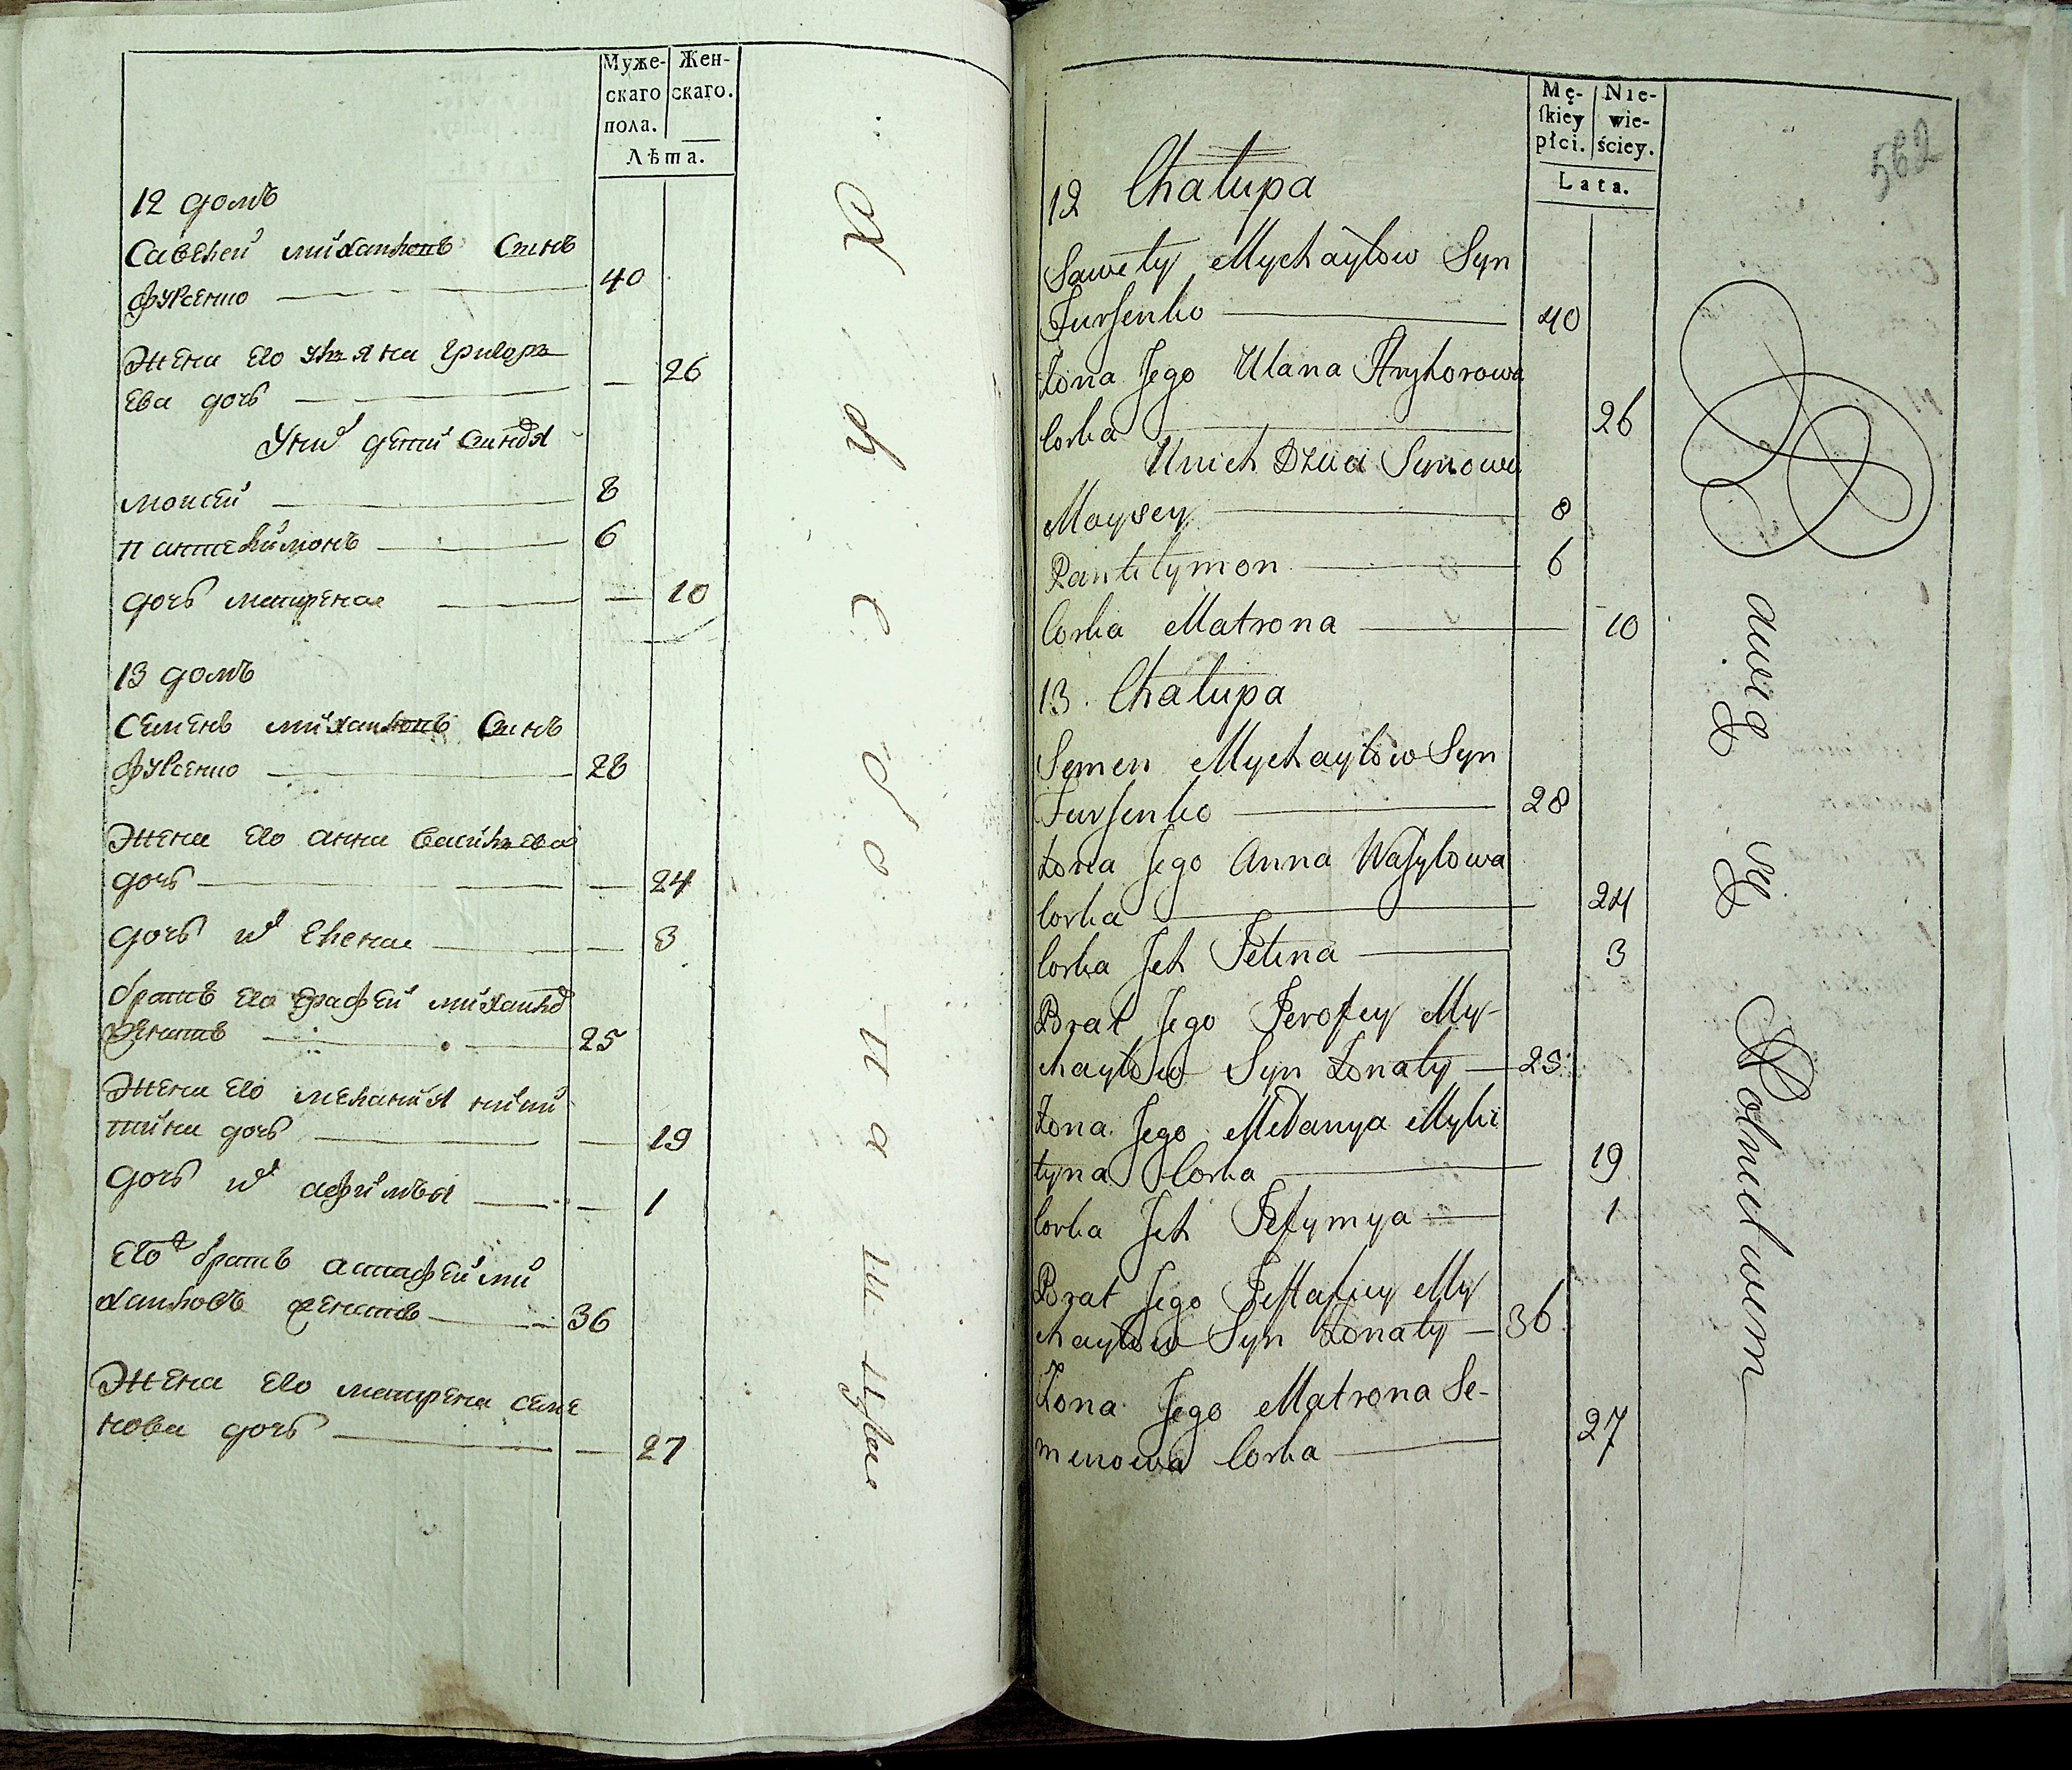 Муже-
скаго
пола.
Жен-
скаго.
Лѣта.
12 домъ
Савелей михайловъ Синъ
фурсенко 40
Жена его улияна григорь
ева дочь 26
У них дети Синовя
моисей 8
пантелимонъ 6
дочь матрена 10
13 домъ
Семенъ михайловъ Синъ
фурсенко 28
Жена его анна василева
дочь 24
дочь их елена 3
братъ его ерафей михайло
женатъ 25
Жена его мелания ники
тина дочь 19
дочь их афимья 1
его братъ астафей ми
хайловъ женатъ 36
Жена его матрена семе
нова дочь 27
562
Mę-
skiey
płci.
Nie-
wie-
ściey.
Lata.
12 Chałupa
Sawely Mychayłow Syn
Fursenko 40
Żona Jego Ulana Hryhorowa
Corka 26
U nich Dzieci Synowe
Moysey 8
Pantelymon 6
Corka Matrona 10
13. Chałupa
Semen Mychayłow Syn
Fursenko 28
Żona Jego Anna Wasylowa
Corka 24
Corka Jch Jelena 3
Brat Jego Jerofiey My-
chayłow Syn Żonaty 25
Żona Jego Melanya Myki
tyna Corka 19
Corka Jch Jefymya 1
Brat Jego Jestafiey My
chayłow Syn Żonaty 36
Żona Jego Matrona Se-
menowa Corka 27